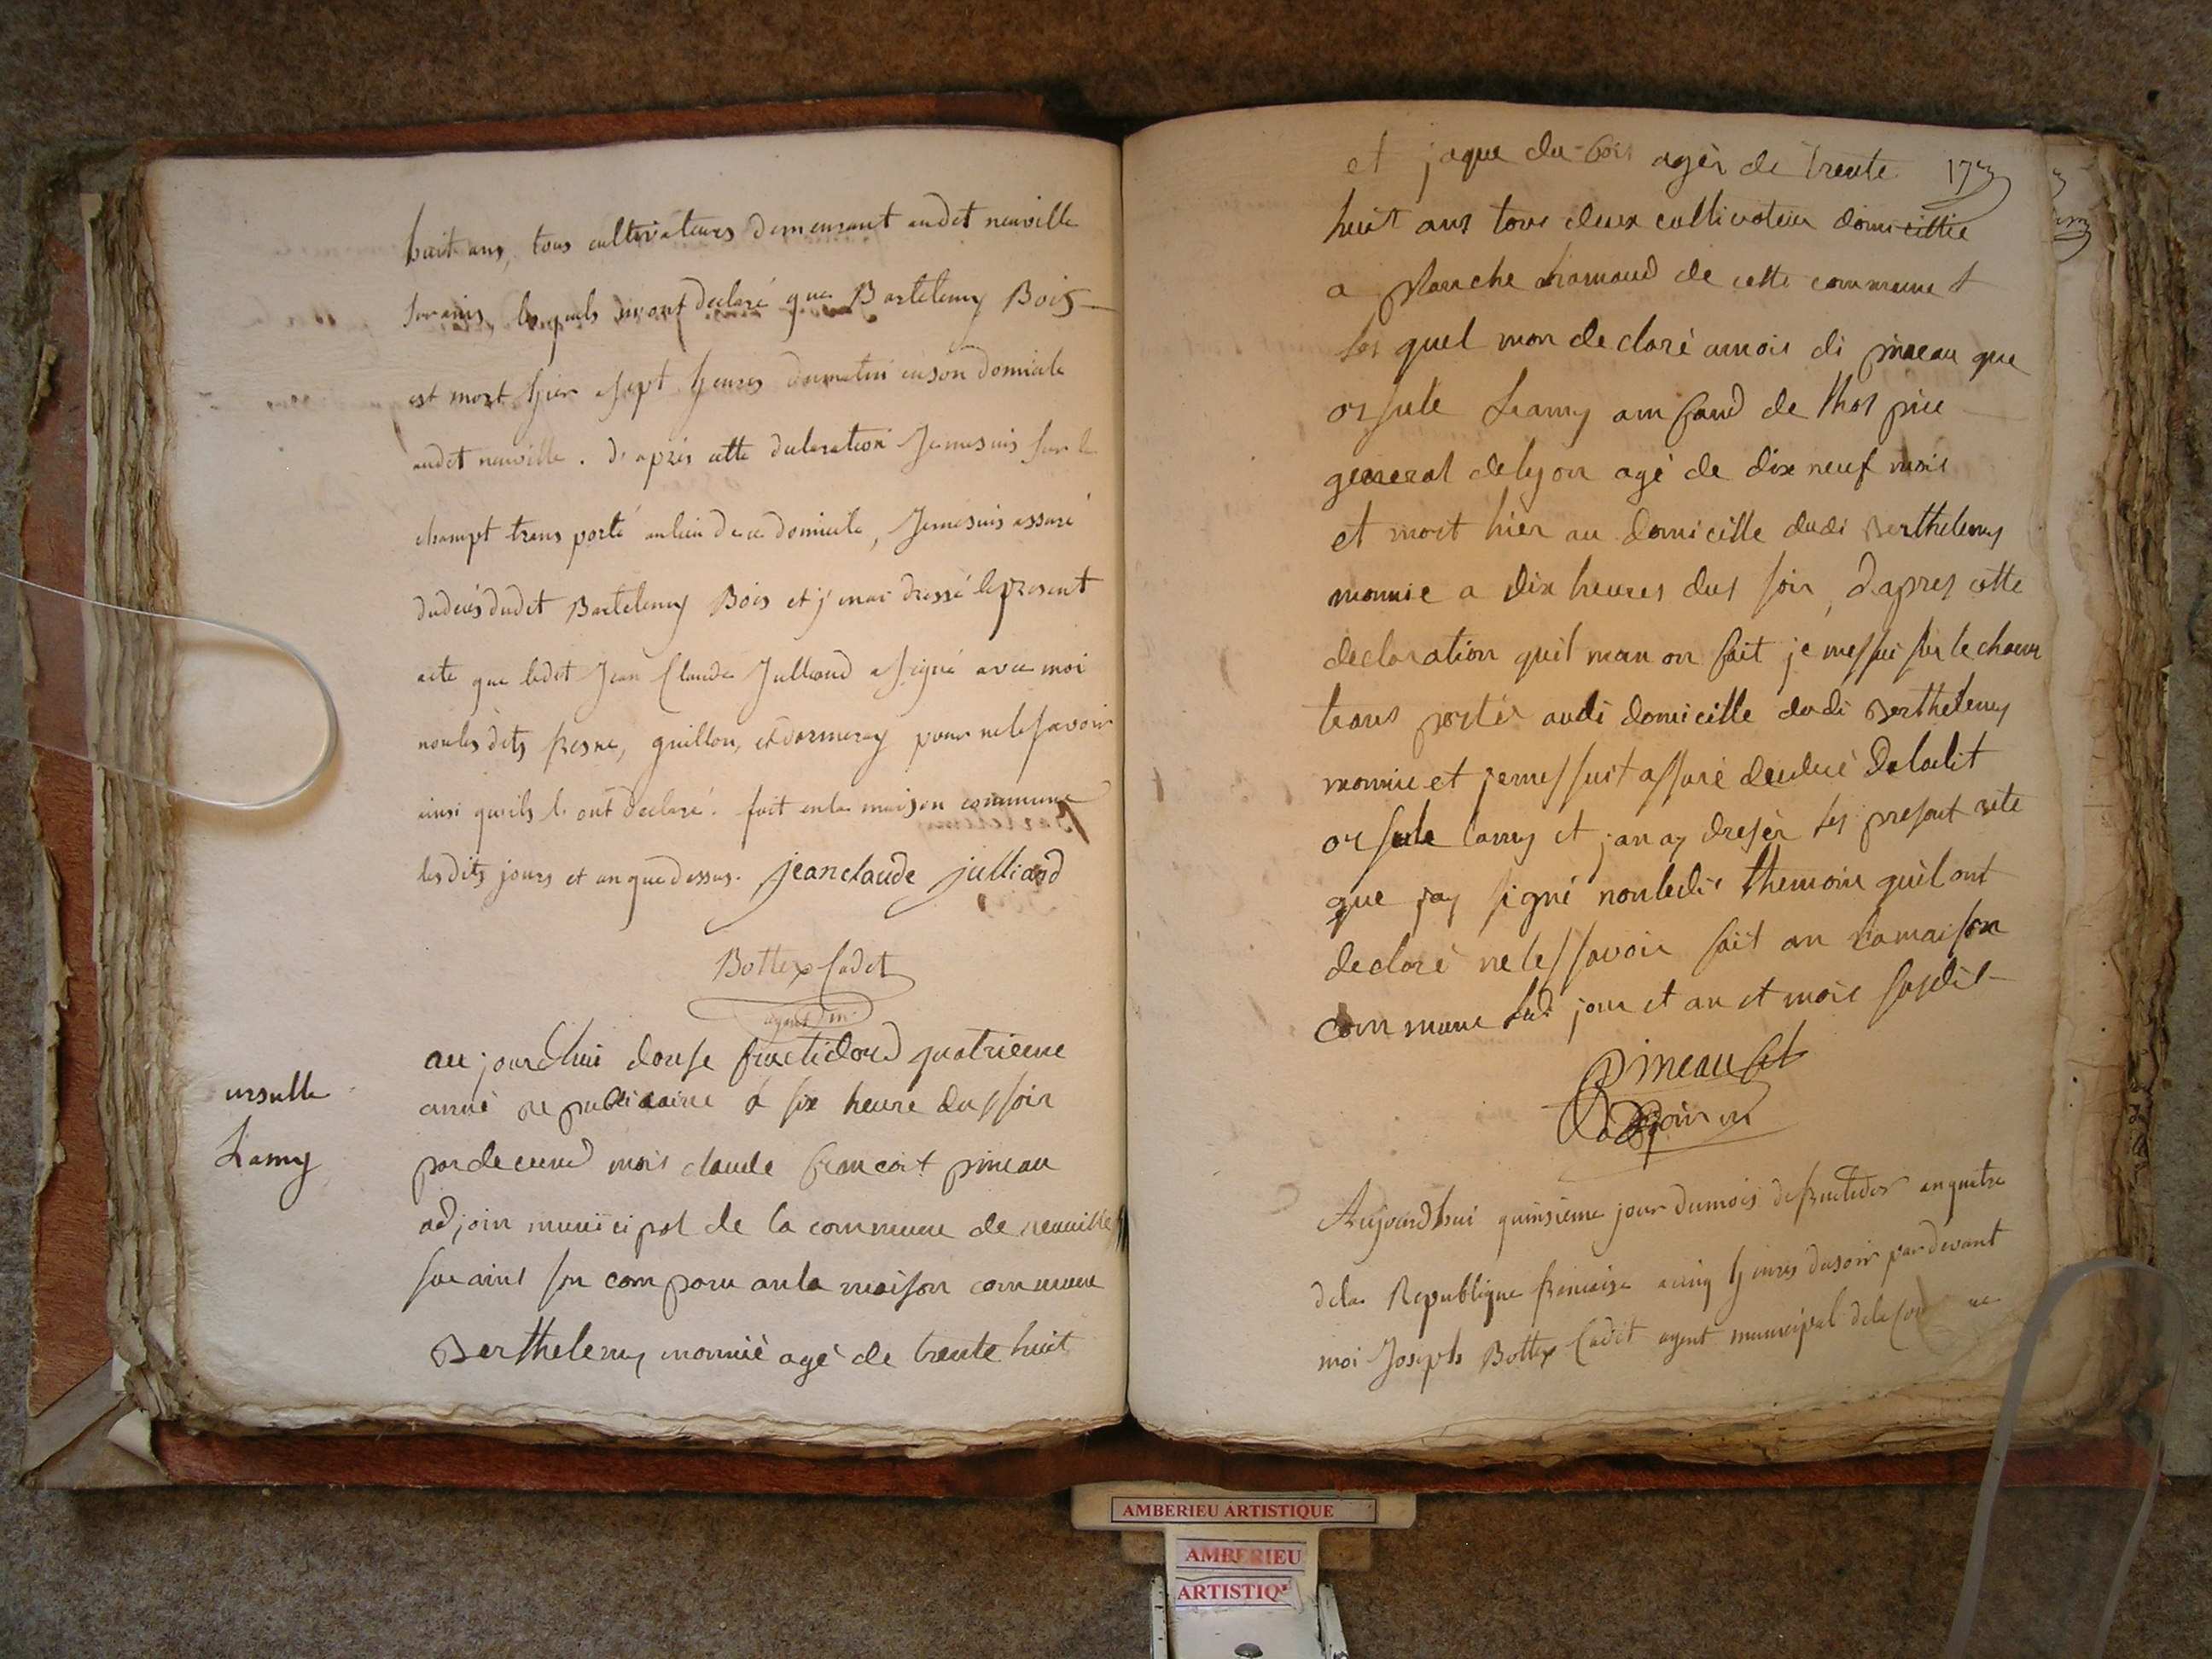 huit ans, tous cultivateurs demeurant audet neuville
sur ains, lesquels m'ont declaré que Bartelemy Bois
est mort hier a sept heures du matin en son domicile
audet neuville. d'après cette declaration Je me suis sur le
champt trans porté au lieu de ce domicile, Je me suis assuré
du decès dudet Bartelemy Bois et j'en ai dressé le present
acte que ledet Jean Claude Julliard a signé avec moi
non les dets fresne, guillon, et dormerey pour ne le savoir
ainsi qu'ils l'ont declaré. fait en la maison commune
les dits jours et an que dessus. jean claude julliard
Bottex Cadet
agent m.
ursulle
Lamy
au jourdhui douse fructidord quatrieme
anné republicaine a six heure dus soir
par decund mois claude francoit pineau
adjoin municipal de la commune de neuville
sur ains son comparu an la maison commune
Berthelemy monnié agé de trente huit
et jaque du-bois agèr de trente
173
huit ans tous deux cultivateur domicillie
a planche de cette commune
les quel mon declaré a mois di pineau que
orsule Lamy anfand de lhospice
general de lyon agé de dix neuf mois
et mort hier au domicille dudi Berthelemy
monnie a dix heures dus soir, dapres cette
declaration quil man on fait je mes sui sur le cham
trans portér audi domicille dudi Berthelemy
monnie et je mes suit assuré de ladit
orsule lamy et jan ay dresér les present acte
que jay signé non ledis themoin quil ont
declaré ne les savoir fait an la maison
commune jour et an et mois susdit
Pineau
adjoin m
Aujourd'hui quinsieme jour du mois de fructidor an quatre
de la Republique francaise a cinq heures du soir par devant
moi Joseph Bottex Cadet agent municipal de la
AMBERIEU ARTISTIQUE
AMBERIEU
ARTISTIQ